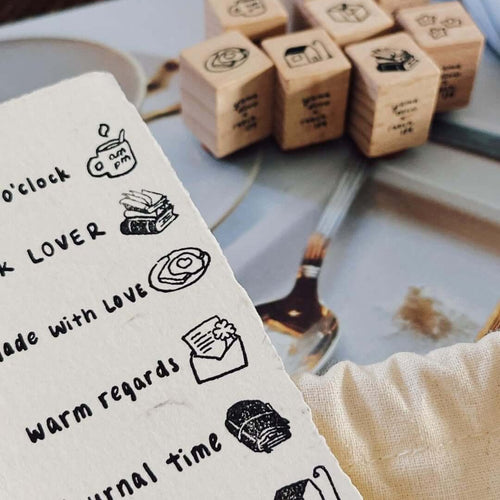 o'clock
am
pm
K LOVER
ade with LOVE
warm regards
urnal time